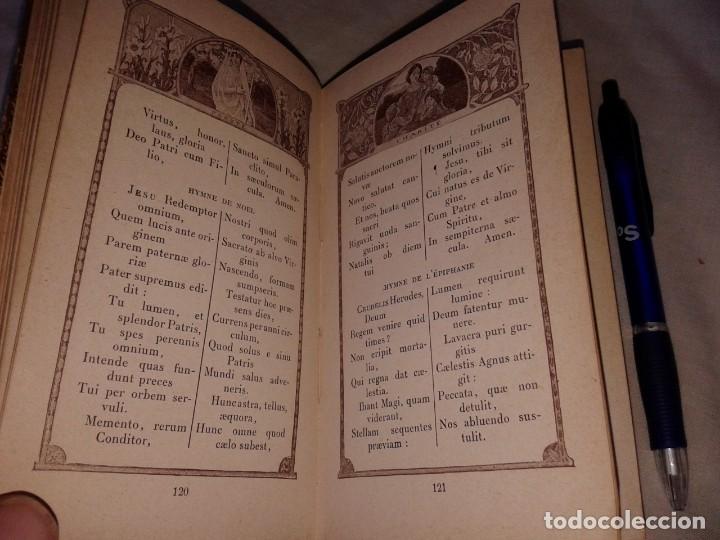 Virtus, honor,
laus, gloria
Deo Patri cum Fi-
lio,
Sancto simul Para-
clito,
In sæculorum sæ-
cula. Amen.
HYMNE DE NOEL
JESU Redemptor
omnium,
Quem lucis ante ori-
ginem
Parem paternæ glo-
riæ
Pater supremus edi-
dit :
Tu lumen, et
splendor Patris,
Tu spes perennis
omnium,
Intende quas fun-
dunt preces
Tui per orbem ser-
vuli.
Memento, rerum
Conditor,
Nostri quod olim
corporis,
Sacrato ab alvo Vir-
ginis
Nascendo, formam
sumpseris.
Testatur hoc præ-
sens dies,
Currens per anni cir-
culum,
Quod solus e sinu
Patris
Mundi salus adve-
neris.
Hunc astra, tellus,
æquora,
Hunc omne quod
cælo subest,
120
CHARITÉ
Salutis auctorem no-
væ
Novo salutat can-
tico.
Et nos, beata quos
sacri
Rigavit unda san-
guinis ;
Natalis ob diem
tui
Hymni tributum
solvimus.
Jesu, tibi sit
gloria,
Cui natus es de Vir-
gine,
Cum Patre et almo
Spiritu,
In sempiterna sæ-
cula. Amen.
HYMNE DE L'ÉPIPHANIE
CRUDELIS Herodes,
Deum
Regem venire quid
times ?
Non eripit morta-
lia,
Qui regna dat cæ-
lestia.
Ibant Magi, quam
viderant,
Stellam sequentes
præviam :
Lumen requirunt
lumine :
Deum fatentur mu-
nere.
Lavacra puri gur-
gitis
Cælestis Agnus attig-
it :
Peccata, quæ non
detulit,
Nos abluendo sus-
tulit.
121
todocoleccion.net